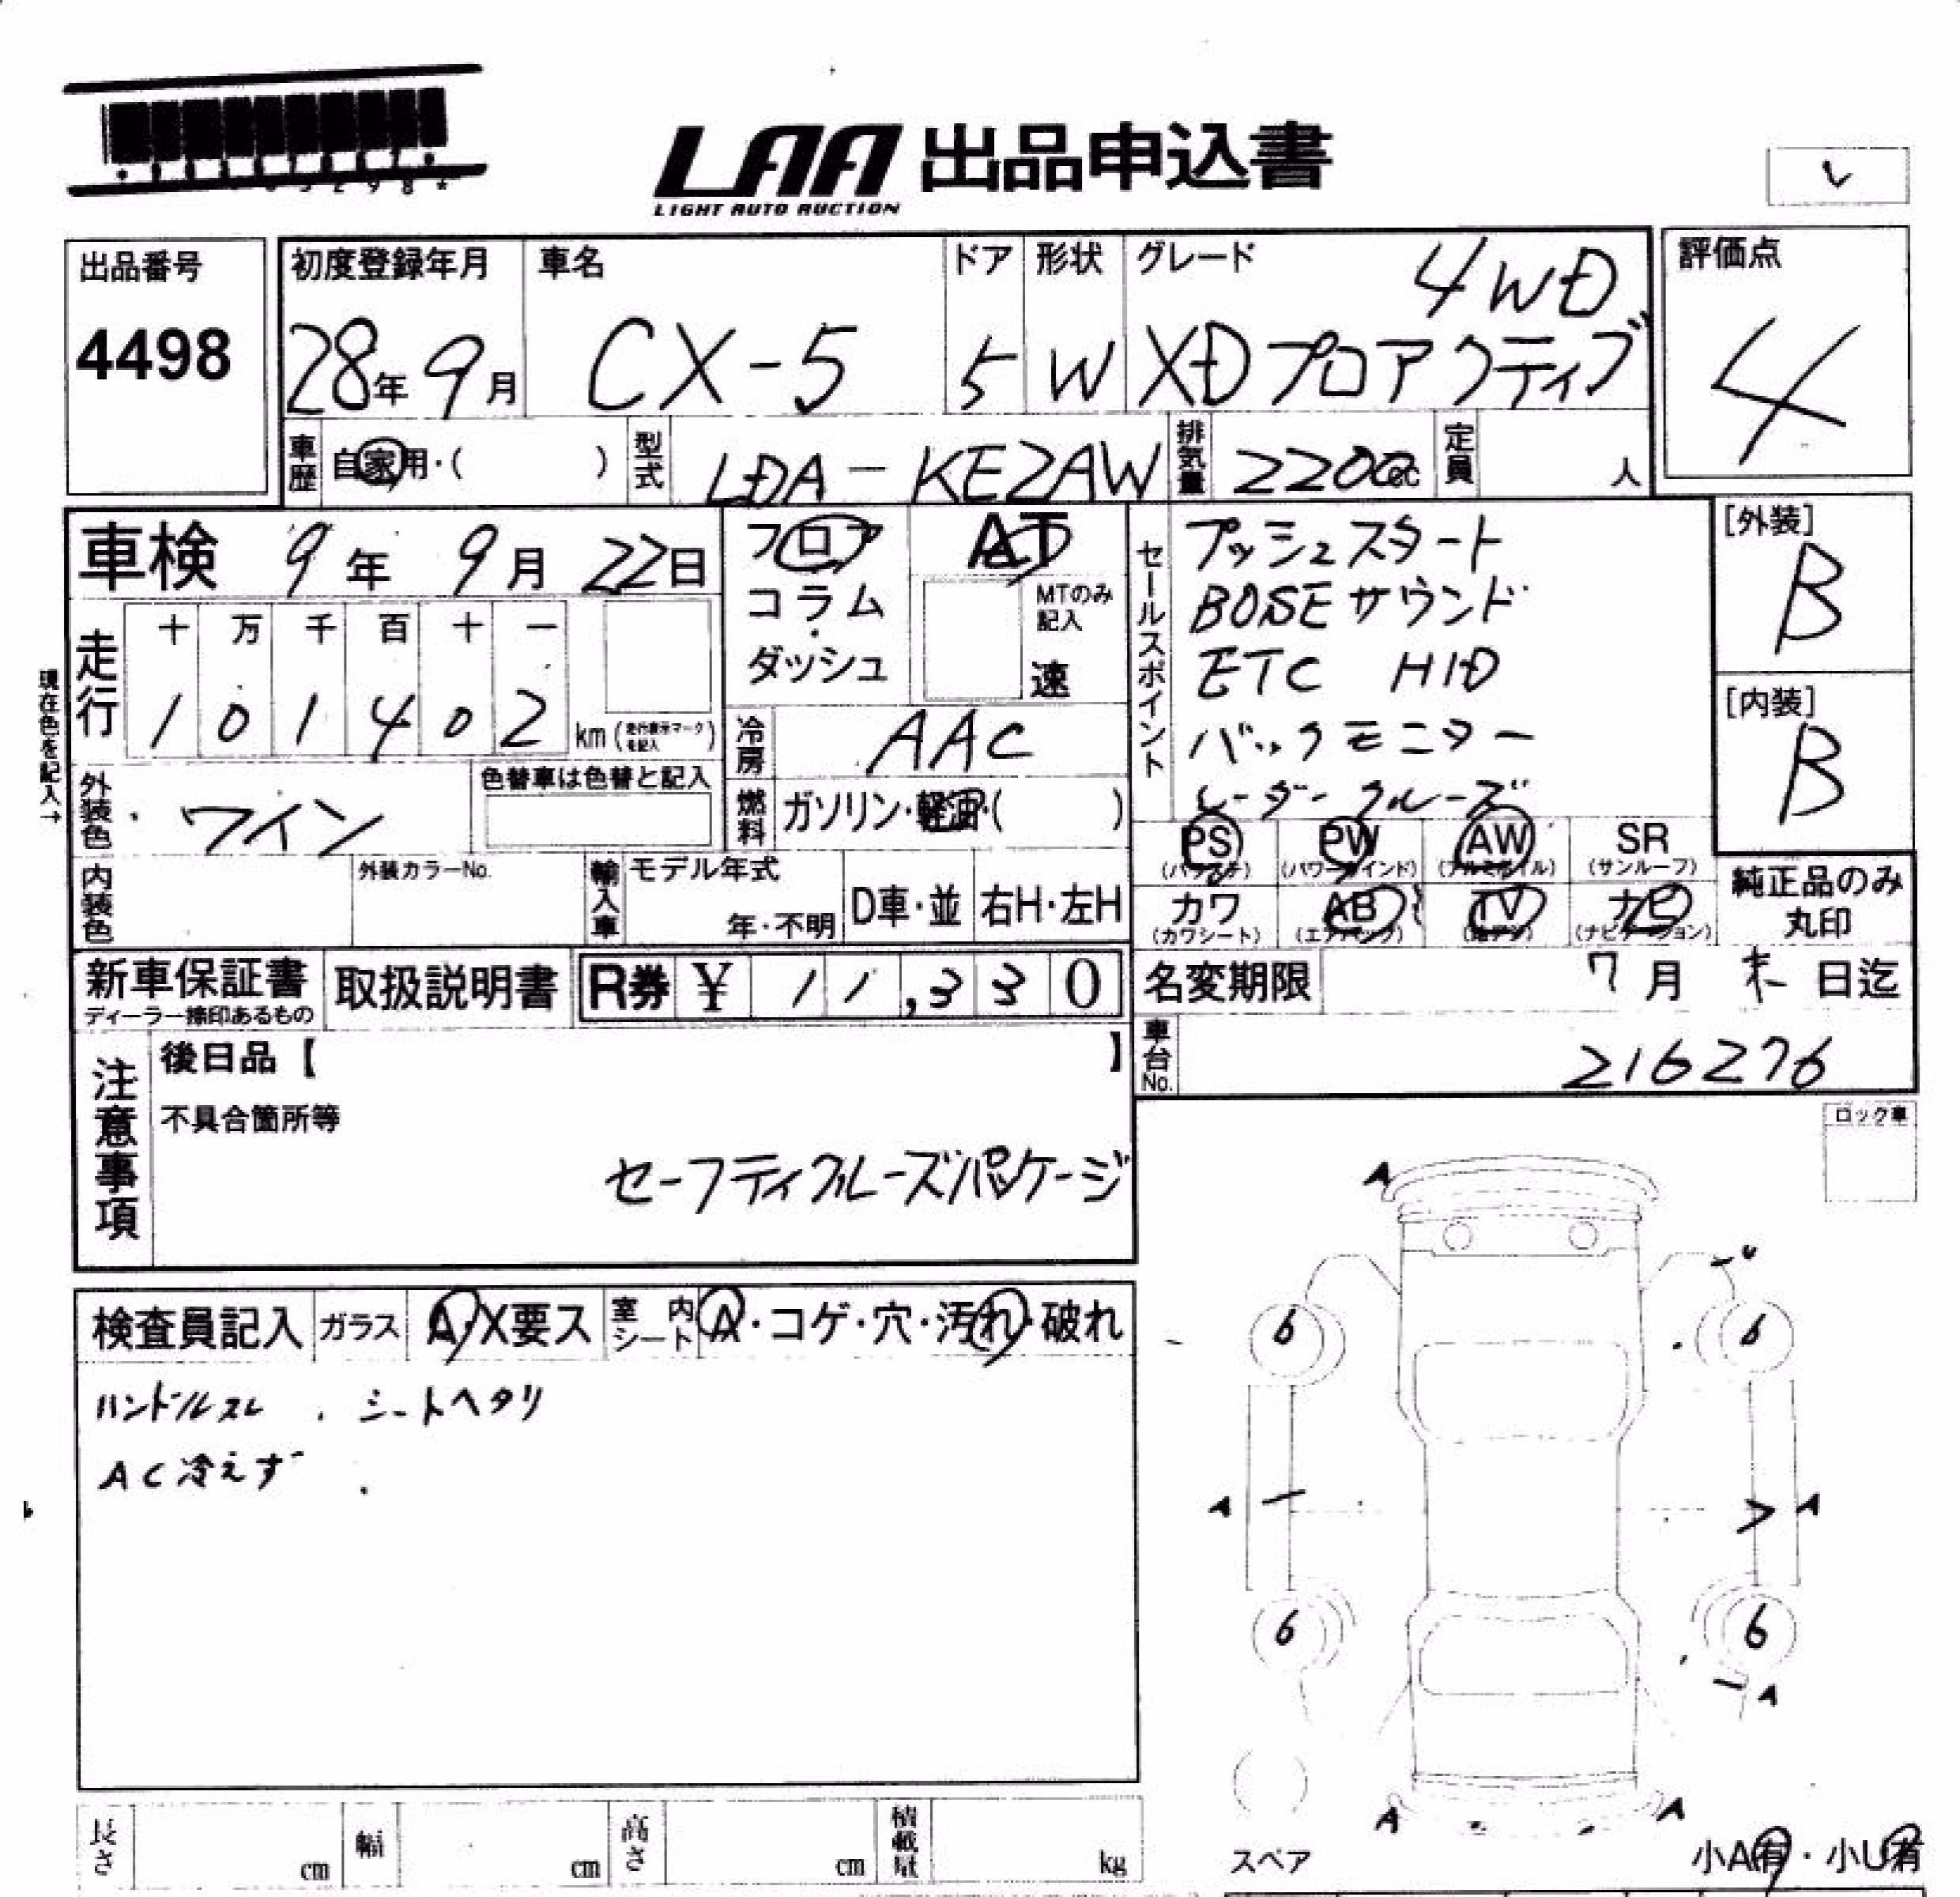 LAA 出品申込書
LIGHT AUTO AUCTION
出品番号
4498
初度登録年月
28年 9月
車名
CX-5
ドア
5
形状
W
グレード
4WD
XDプロアクティブ
評価点
4
車歴 自家用・( )
型式 LDA-KE2AW
排気量 2200cc
定員 人
車検 9年 9月 22日
フロア
コラム
・
ダッシュ
AT
MTのみ
記入
速
セールスポイント
プッシュスタート
BOSEサウンド
ETC HID
バックモニター
レーダークルーズ
[外装]
B
[内装]
B
現在色を記入→
走行
十 万 千 百 十 一
1 0 1 4 0 2 km (走行表示マークを記入)
冷房 AAC
外装色 ワイン
色替車は色替と記入
燃料 ガソリン・軽油・( )
PS (パワステ)
PW (パワーウインド)
AW (アルミホイル)
SR (サンルーフ)
カワ (カワシート)
AB (エアバック)
TV
ナビ (ナビゲーション)
純正品のみ
丸印
内装色
外装カラーNo.
輸入車
モデル年式
年・不明
D車・並
右H・左H
新車保証書
ディーラー捺印あるもの
取扱説明書
R券 ¥ 11,330
名変期限 7月 末日迄
車台No. 216276
注意事項
後日品【 】
不具合箇所等
セーフティクルーズパッケージ
ロック車
検査員記入
ガラス A・X要ス
室内シート A・コゲ・穴・汚れ・破れ
ハンドルスレ . シートヘタリ
AC冷えず
A
6 6
A A
6 6
A
A A
スペア
小A有・小U有
長さ cm
幅 cm
高さ cm
積載量 kg